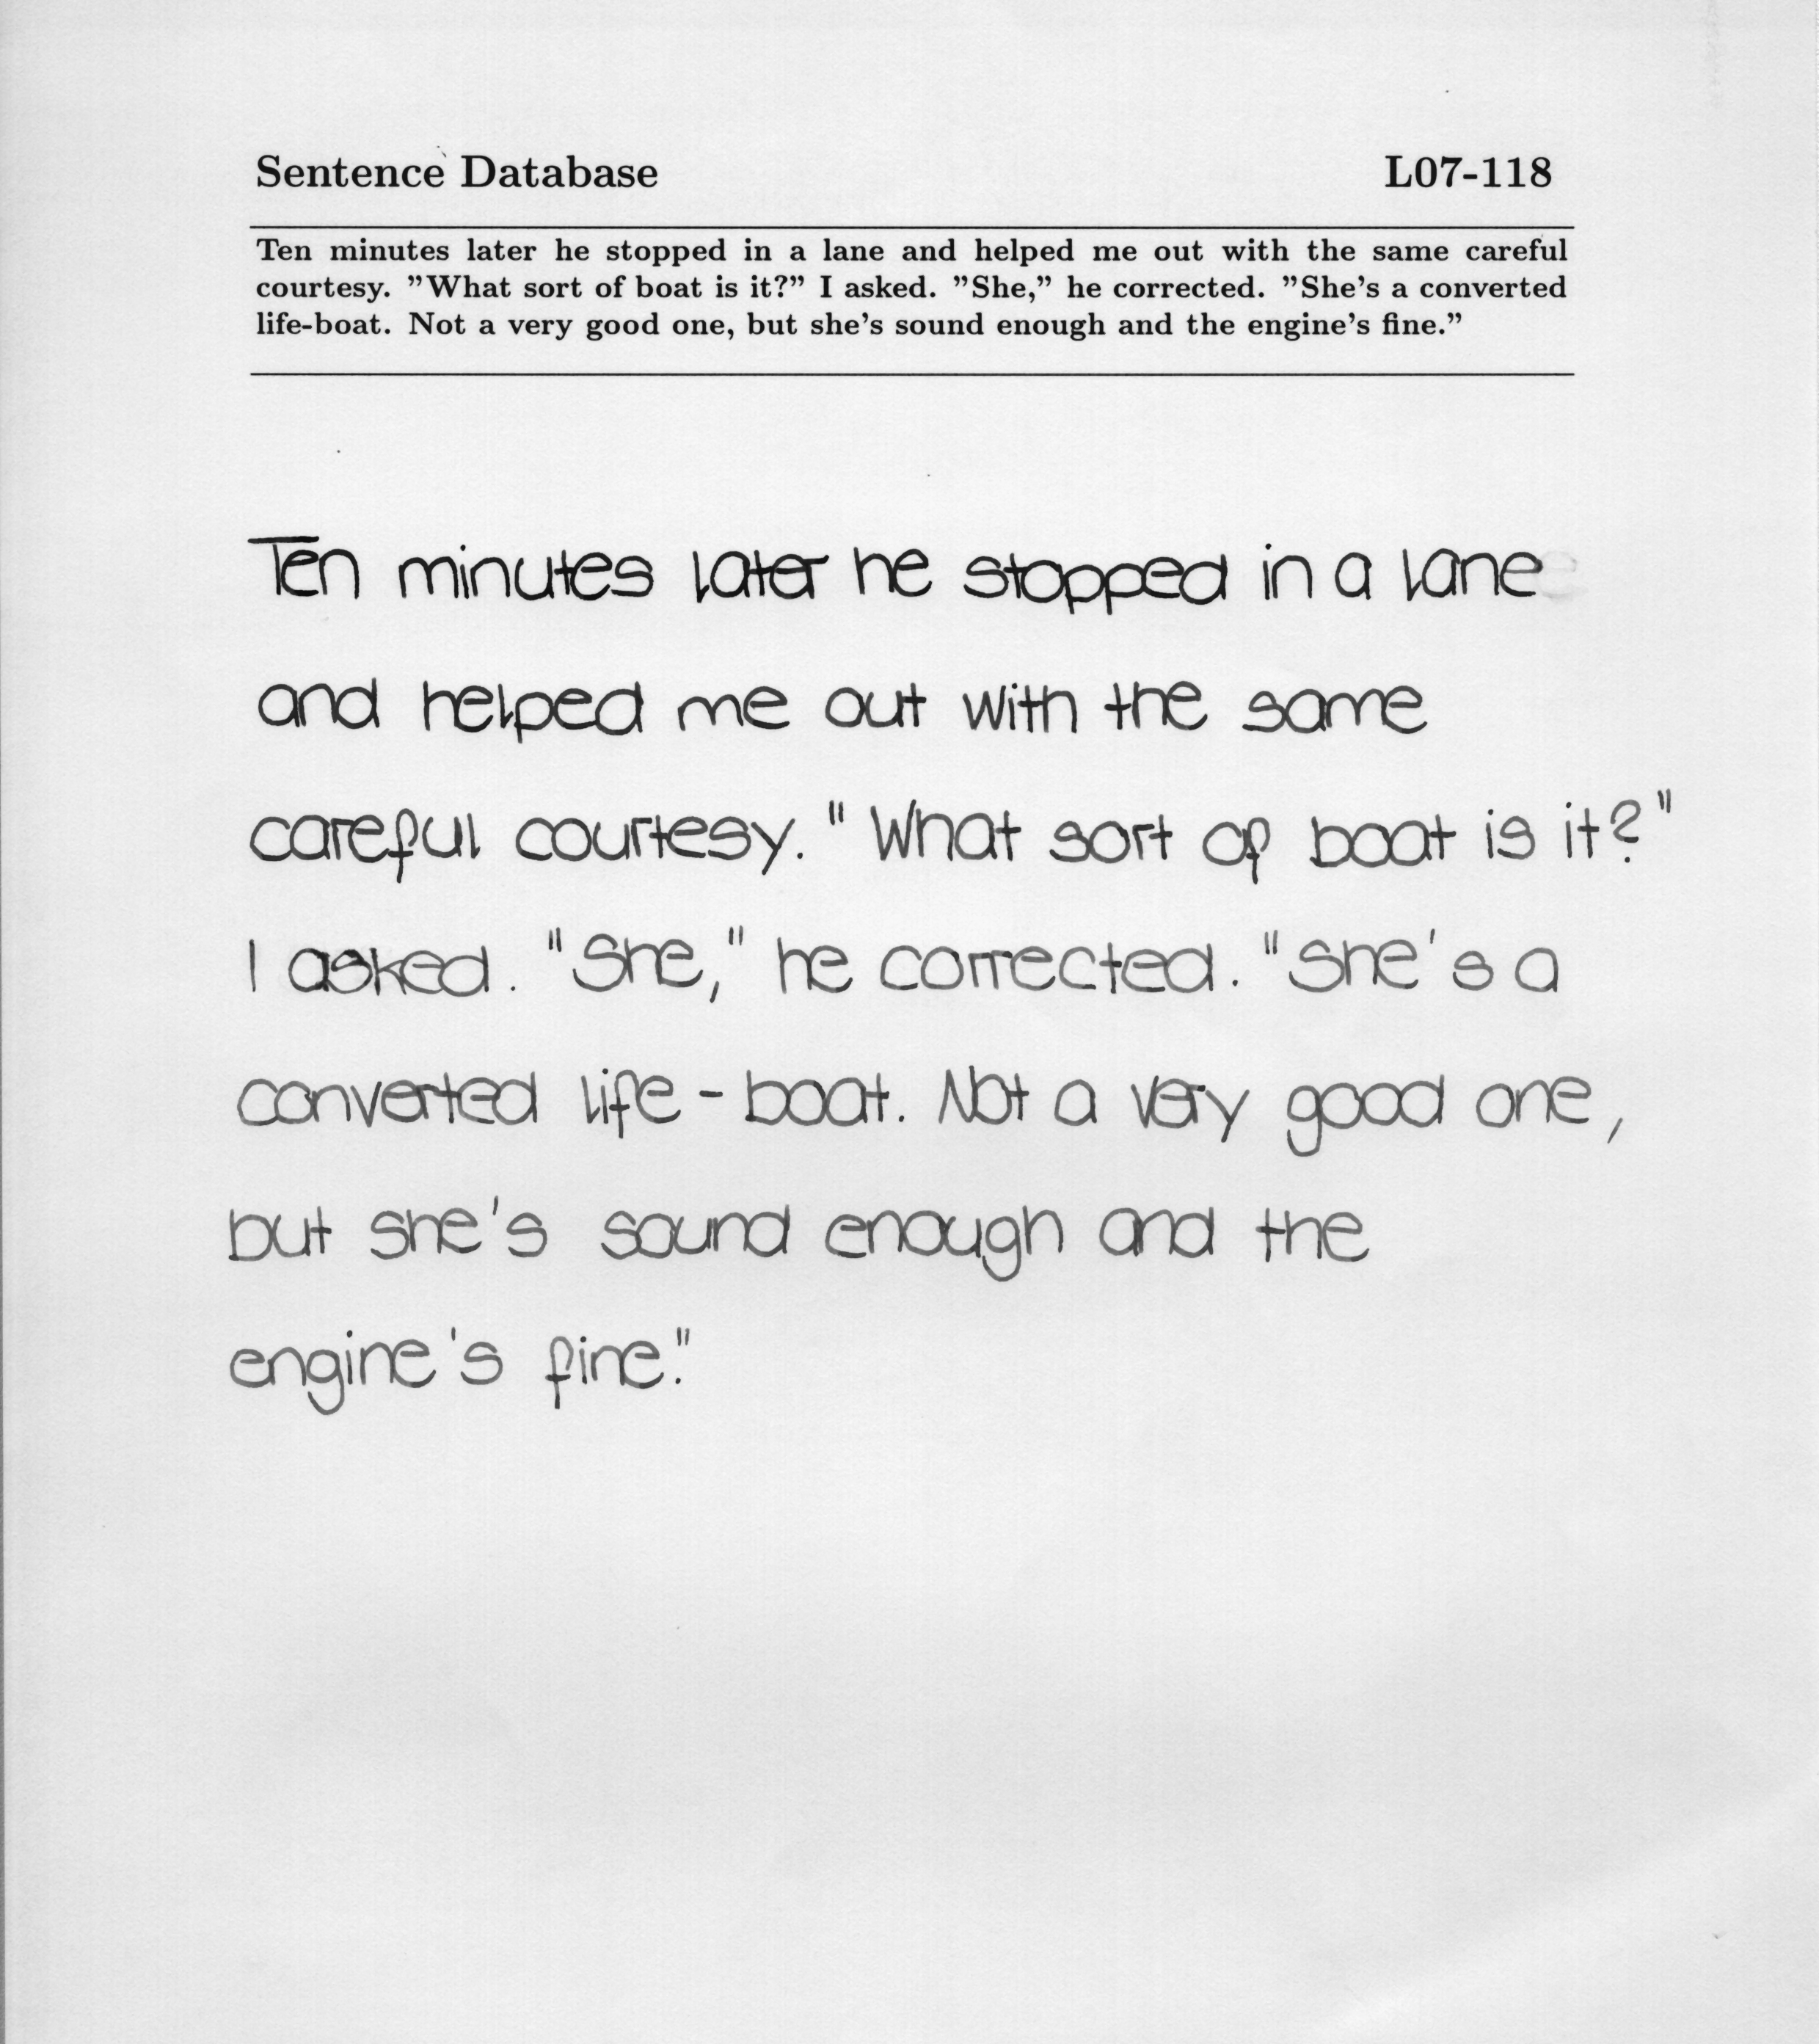 Sentence Database L07-118
Ten minutes later he stopped in a lane and helped me out with the same careful
courtesy. "What sort of boat is it?" I asked. "She," he corrected. "She's a converted
life-boat. Not a very good one, but she's sound enough and the engine's fine."
Ten minutes later he stopped in a lane
and helped me out with the same
careful courtesy. "What sort of boat is it?"
I asked. "She," he corrected. "She's a
converted life-boat. Not a very good one,
but she's sound enough and the
engine's fine."